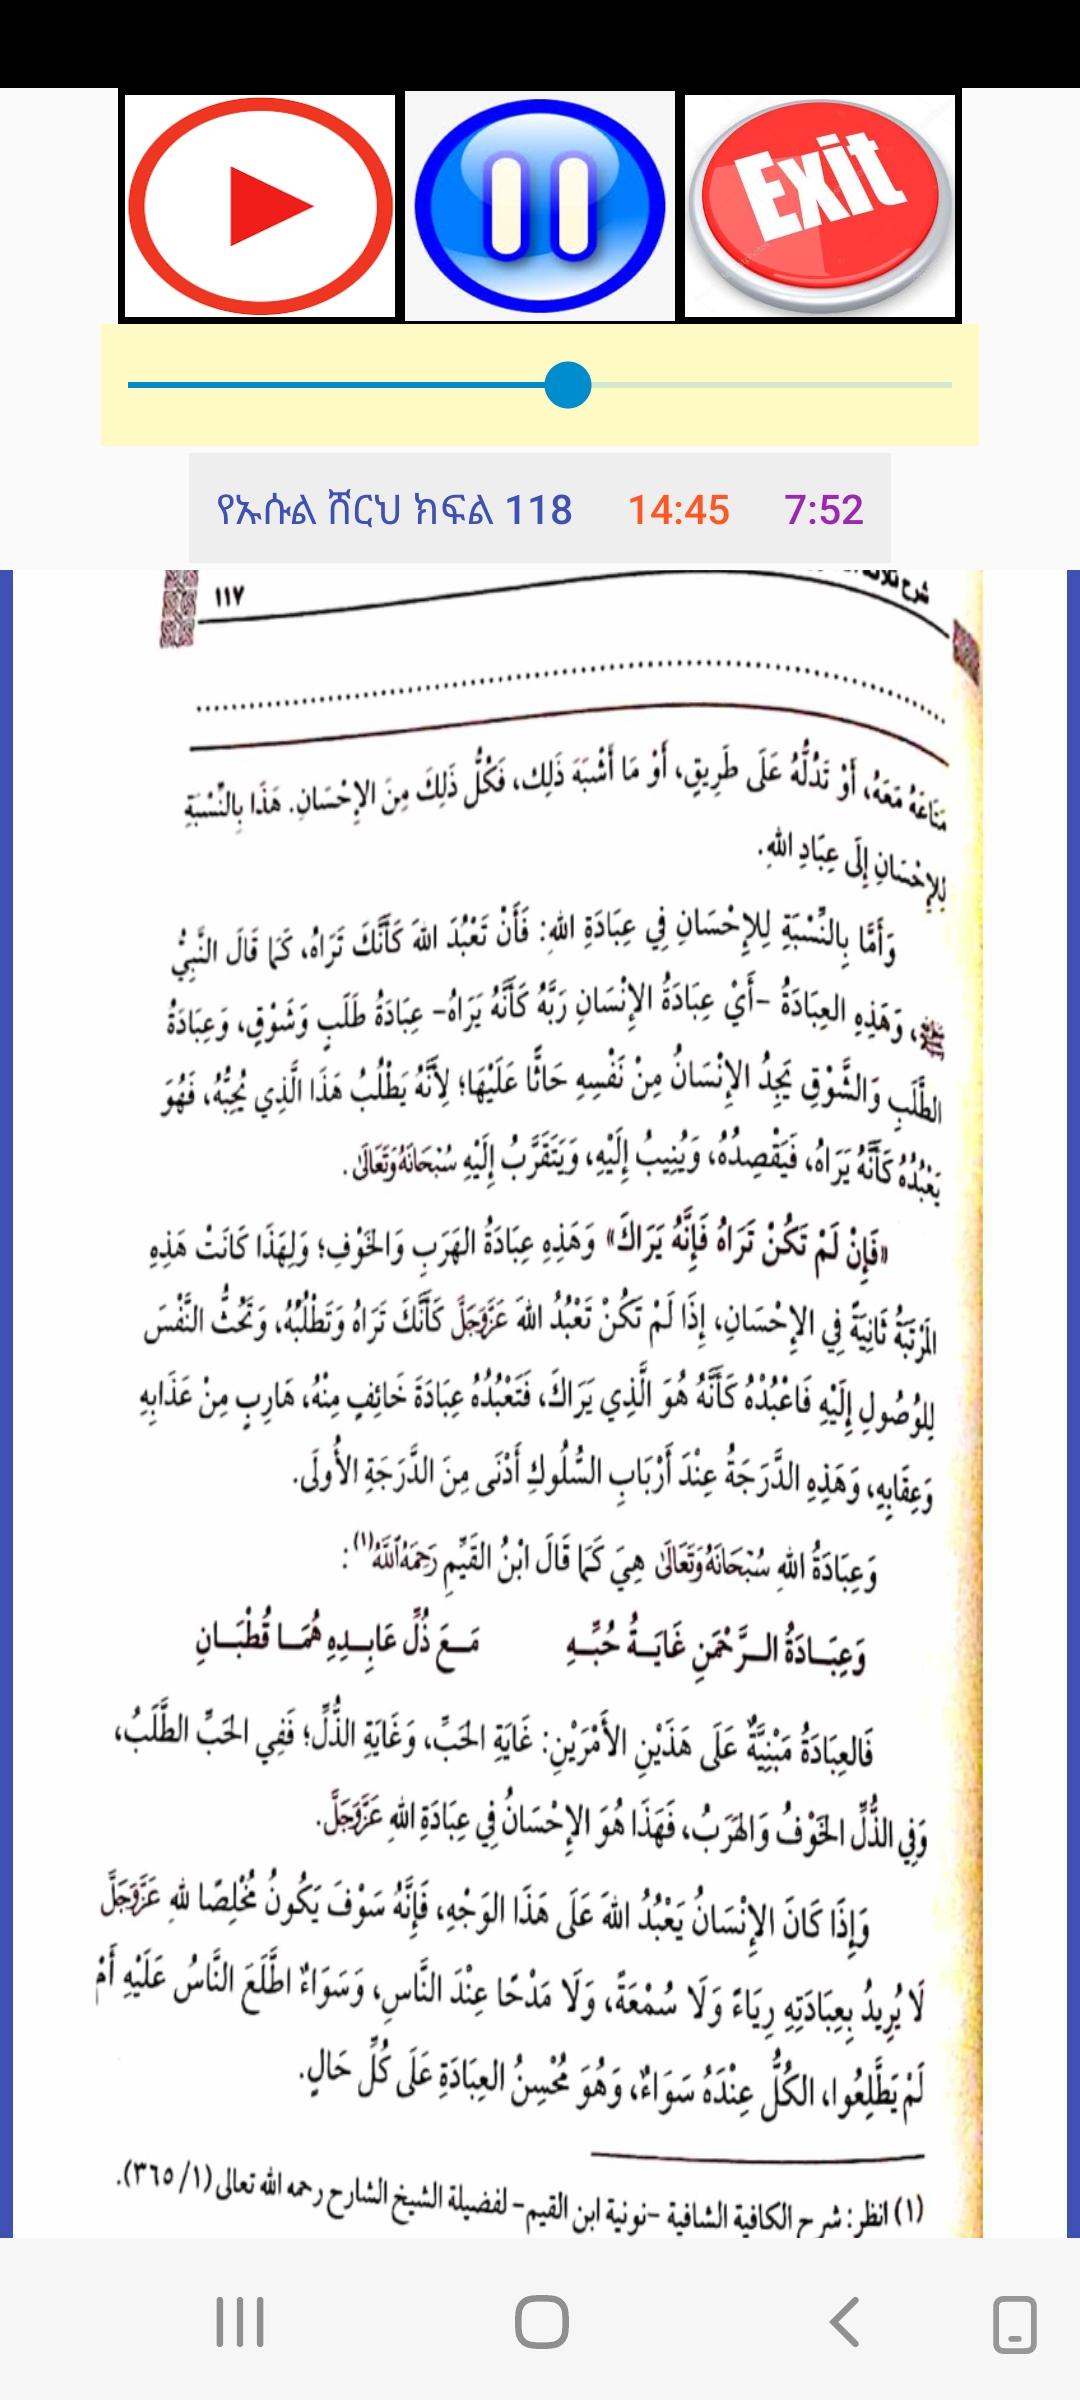 Exit
የኡሱል ሸርህ ክፍል 118 14:45 7:52
١١٧
مَتَاعَهُ مَعَهُ، أَوْ تَدُلُّهُ عَلَى طَرِيقٍ، أَوْ مَا أَشْبَهَ ذَلِك، فَكُلُّ ذَلِكَ مِنَ الإِحْسَانِ. هَذَا بِالنِّسْبَةِ
لِلإِحْسَانِ إِلَى عِبَادِ اللهِ.
وَأَمَّا بِالنِّسْبَةِ لِلإِحْسَانِ فِي عِبَادَةِ اللهِ: فَأَنْ تَعْبُدَ اللهَ كَأَنَّكَ تَرَاهُ، كَمَا قَالَ النَّبِيُّ
ﷺ، وَهَذِهِ العِبَادَةُ -أَيْ عِبَادَةُ الإِنْسَانِ رَبَّهُ كَأَنَّهُ يَرَاهُ- عِبَادَةُ طَلَبٍ وَشَوْقٍ، وَعِبَادَةُ
الطَّلَبِ وَالشَّوْقِ يَجِدُ الإِنْسَانُ مِنْ نَفْسِهِ حَاثًّا عَلَيْهَا؛ لِأَنَّهُ يَطْلُبُ هَذَا الَّذِي يُحِبُّهُ، فَهُوَ
يَعْبُدُهُ كَأَنَّهُ يَرَاهُ، فَيَقْصِدُهُ، وَيُنِيبُ إِلَيْهِ، وَيَتَقَرَّبُ إِلَيْهِ سُبْحَانَهُ وَتَعَالَى.
«فَإِنْ لَمْ تَكُنْ تَرَاهُ فَإِنَّهُ يَرَاكَ» وَهَذِهِ عِبَادَةُ الهَرَبِ وَالخَوْفِ؛ وَلِهَذَا كَانَتْ هَذِهِ
المَرْتَبَةُ ثَانِيَةً فِي الإِحْسَانِ، إِذَا لَمْ تَكُنْ تَعْبُدُ اللهَ عَزَّوَجَلَّ كَأَنَّكَ تَرَاهُ وَتَطْلُبُهُ، وَتَحُثُّ النَّفْسَ
لِلوُصُولِ إِلَيْهِ فَاعْبُدْهُ كَأَنَّهُ هُوَ الَّذِي يَرَاكَ، فَتَعْبُدُهُ عِبَادَةَ خَائِفٍ مِنْهُ، هَارِبٍ مِنْ عَذَابِهِ
وَعِقَابِهِ، وَهَذِهِ الدَّرَجَةُ عِنْدَ أَرْبَابِ السُّلُوكِ أَدْنَى مِنَ الدَّرَجَةِ الأُولَى.
وَعِبَادَةُ اللهِ سُبْحَانَهُ وَتَعَالَى هِيَ كَمَا قَالَ ابْنُ القَيِّمِ رَحِمَهُ اللَّهُ(١):
وَعِبَــادَةُ الــرَّحْمَنِ غَايَــةُ حُبِّــهِ مَــعَ ذُلِّ عَابِــدِهِ هُمَــا قُطْبَــانِ
فَالعِبَادَةُ مَبْنِيَّةٌ عَلَى هَذَيْنِ الأَمْرَيْنِ: غَايَةِ الحَبِّ، وَغَايَةِ الذُّلِّ؛ فَفِي الحَبِّ الطَّلَبُ،
وَفِي الذُّلِّ الخَوْفُ وَالهَرَبُ، فَهَذَا هُوَ الإِحْسَانُ فِي عِبَادَةِ اللهِ عَزَّوَجَلَّ.
وَإِذَا كَانَ الإِنْسَانُ يَعْبُدُ اللهَ عَلَى هَذَا الوَجْهِ، فَإِنَّهُ سَوْفَ يَكُونُ مُخْلِصًا للهِ عَزَّوَجَلَّ
لَا يُرِيدُ بِعِبَادَتِهِ رِيَاءً وَلَا سُمْعَةً، وَلَا مَدْحًا عِنْدَ النَّاسِ، وَسَوَاءٌ اطَّلَعَ النَّاسُ عَلَيْهِ أَمْ
لَمْ يَطَّلِعُوا، الكُلُّ عِنْدَهُ سَوَاءٌ، وَهُوَ مُحْسِنُ العِبَادَةِ عَلَى كُلِّ حَالٍ.
(١) انظر: شرح الكافية الشافية -نونية ابن القيم- لفضيلة الشيخ الشارح رحمه الله تعالى (١/ ٣٦٥).